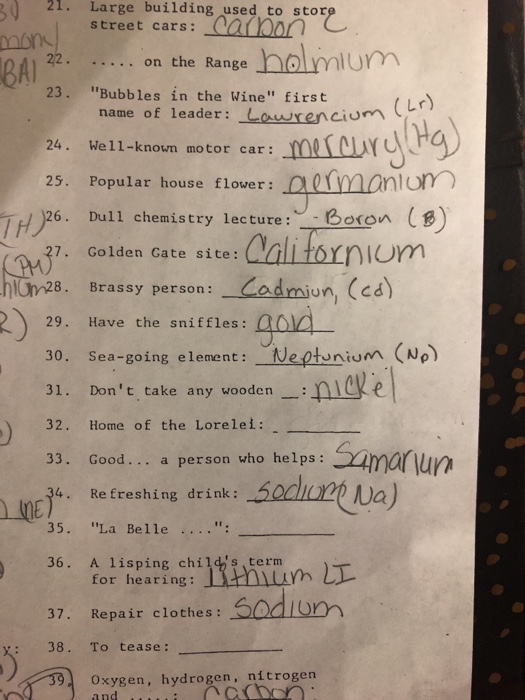 21. Large building used to store
street cars: Carbon C
22. ..... on the Range holmium
23. "Bubbles in the Wine" first
name of leader: Lawrencium (Lr)
24. Well-known motor car: mercury (Hg)
25. Popular house flower: germanium
TH) 26. Dull chemistry lecture: - Boron (B)
(PM) 27. Golden Gate site: Californium
28. Brassy person: Cadmiun, (cd)
R) 29. Have the sniffles: gold
30. Sea-going element: Neptunium (Np)
31. Don't take any wooden _: nickel
32. Home of the Lorelei: ______
33. Good... a person who helps: Samarium
(NE) 34. Refreshing drink: sodium (Na)
35. "La Belle ....": ______
36. A lisping child's term
for hearing: lithium LI
37. Repair clothes: Sodium
38. To tease: ______
39. Oxygen, hydrogen, nitrogen
and .....: Carbon.